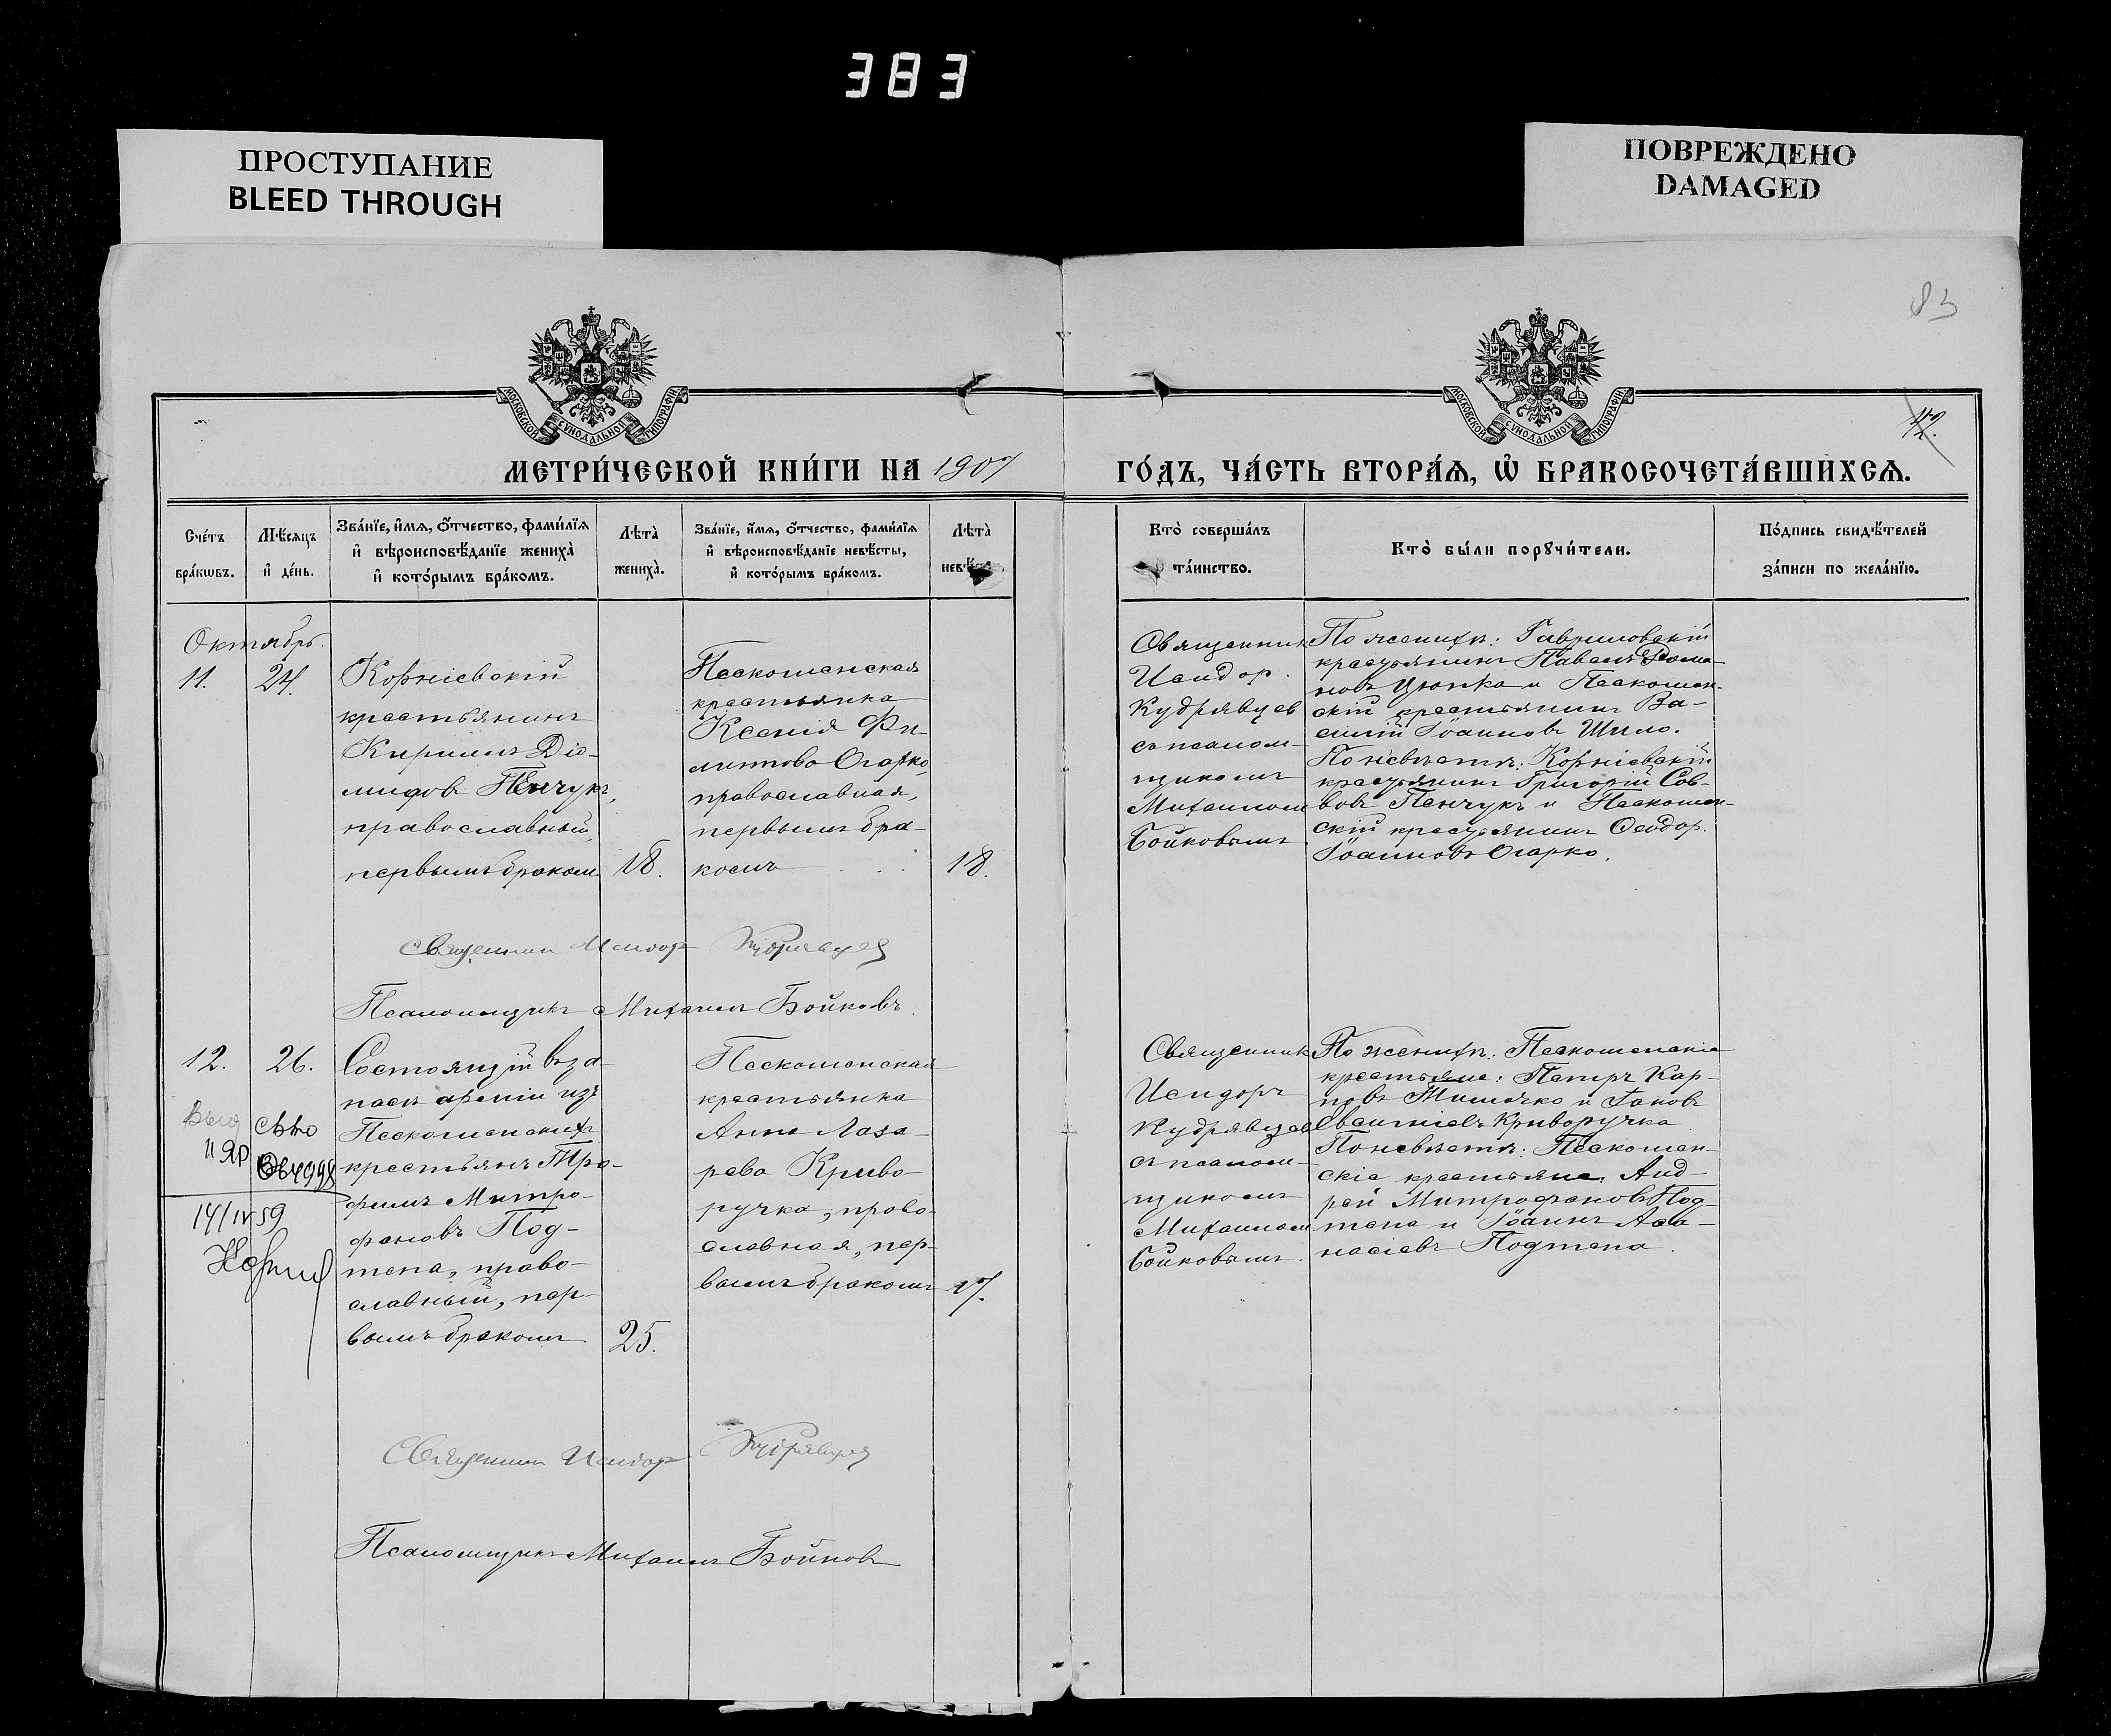 383
ПРОСТУПАНИЕ
BLEED THROUGH
ПОВРЕЖДЕНО
DAMAGED
83
МОСКОВСКОЙ СѴНОДАЛЬНОЙ ТИПОГРАФІИ
МОСКОВСКОЙ СѴНОДАЛЬНОЙ ТИПОГРАФІИ
42.
МЕТРИ́ЧЕСКОЙ КНИ́ГИ НА 1907
ГО́ДЪ, ЧА́СТЬ ВТОРА́Ѧ, Ѡ҆ БРАКОСОЧЕТА́ВШИХСѦ.
Сче́тъ бра́кѡвъ.
Мѣ́сѧцъ и҆ де́нь.
Зва́нїе, и҆́мѧ, ѻ҆́тчество, фами́лїѧ
и҆ вѣроисповѣ́данїе жениха̀
и҆ кото́рымъ бра́комъ.
Лѣта̀ жениха̀.
Зва́нїе, и҆́мѧ, ѻ҆́тчество, фами́лїѧ
и҆ вѣроисповѣ́данїе невѣ́сты,
и҆ кото́рымъ бра́комъ.
Лѣта̀
Кто̀ соверша́лъ
та́инство.
Кто̀ бы́ли порꙋчи́тели.
По́дпись свидѣ́телей
за́писи по жела́нїю.
Октябрь
11.
24.
Корніевскій
крестьянинъ
Кириллъ Діо-
мидовъ Пенчукъ,
православный,
первымъ бракомъ
18.
Пескошенская
крестьянка
Ксенія Фи-
липпова Огарко,
православная,
первымъ бра-
комъ
18.
Священникъ
Исидор
Кудрявцев
съ псалом-
щикомъ
Михаиломъ
Бойковымъ
По женихѣ: Гавриловскій
крестьянинъ Павелъ Рома-
новъ Цюпка и Пескошен-
скій крестьянинъ Ва-
силій Іоанновъ Шило.
По невѣстѣ: Корніевскій
крестьянинъ Григорій Сав-
вовъ Пенчукъ и Пескошен-
скій крестьянинъ Ѳеодор.
Іоанновъ Огарко.
Священник Исидор Кудрявцев
Псаломщикъ Михаилъ Бойковъ.
12.
26.
Состоящій въ за-
пасѣ арміи изъ
Пескошенскихъ
крестьянъ Тро-
фимъ Митро-
фановъ Под-
тепа, право-
славный, пер-
вымъ бракомъ
25.
Пескошенская
крестьянка
Анна Лаза-
рева Криво-
ручка, право-
славная, пер-
вымъ бракомъ
17.
14/IV 59
Священник
Исидоръ
Кудрявцев
съ псалом-
щикомъ
Михаиломъ
Бойковымъ.
По женихѣ: Пескошенскіе
крестьяне: Петръ Кар-
повъ и Іаковъ
Криворучка
По невѣстѣ: Пескошен-
скіе крестьяне: Анд-
рей Митрофановъ Под-
тепа и Іоаннъ Аѳа-
насіевъ Подтепа.
Священник Исидор Кудрявцев
Псаломщикъ Михаилъ Бойковъ